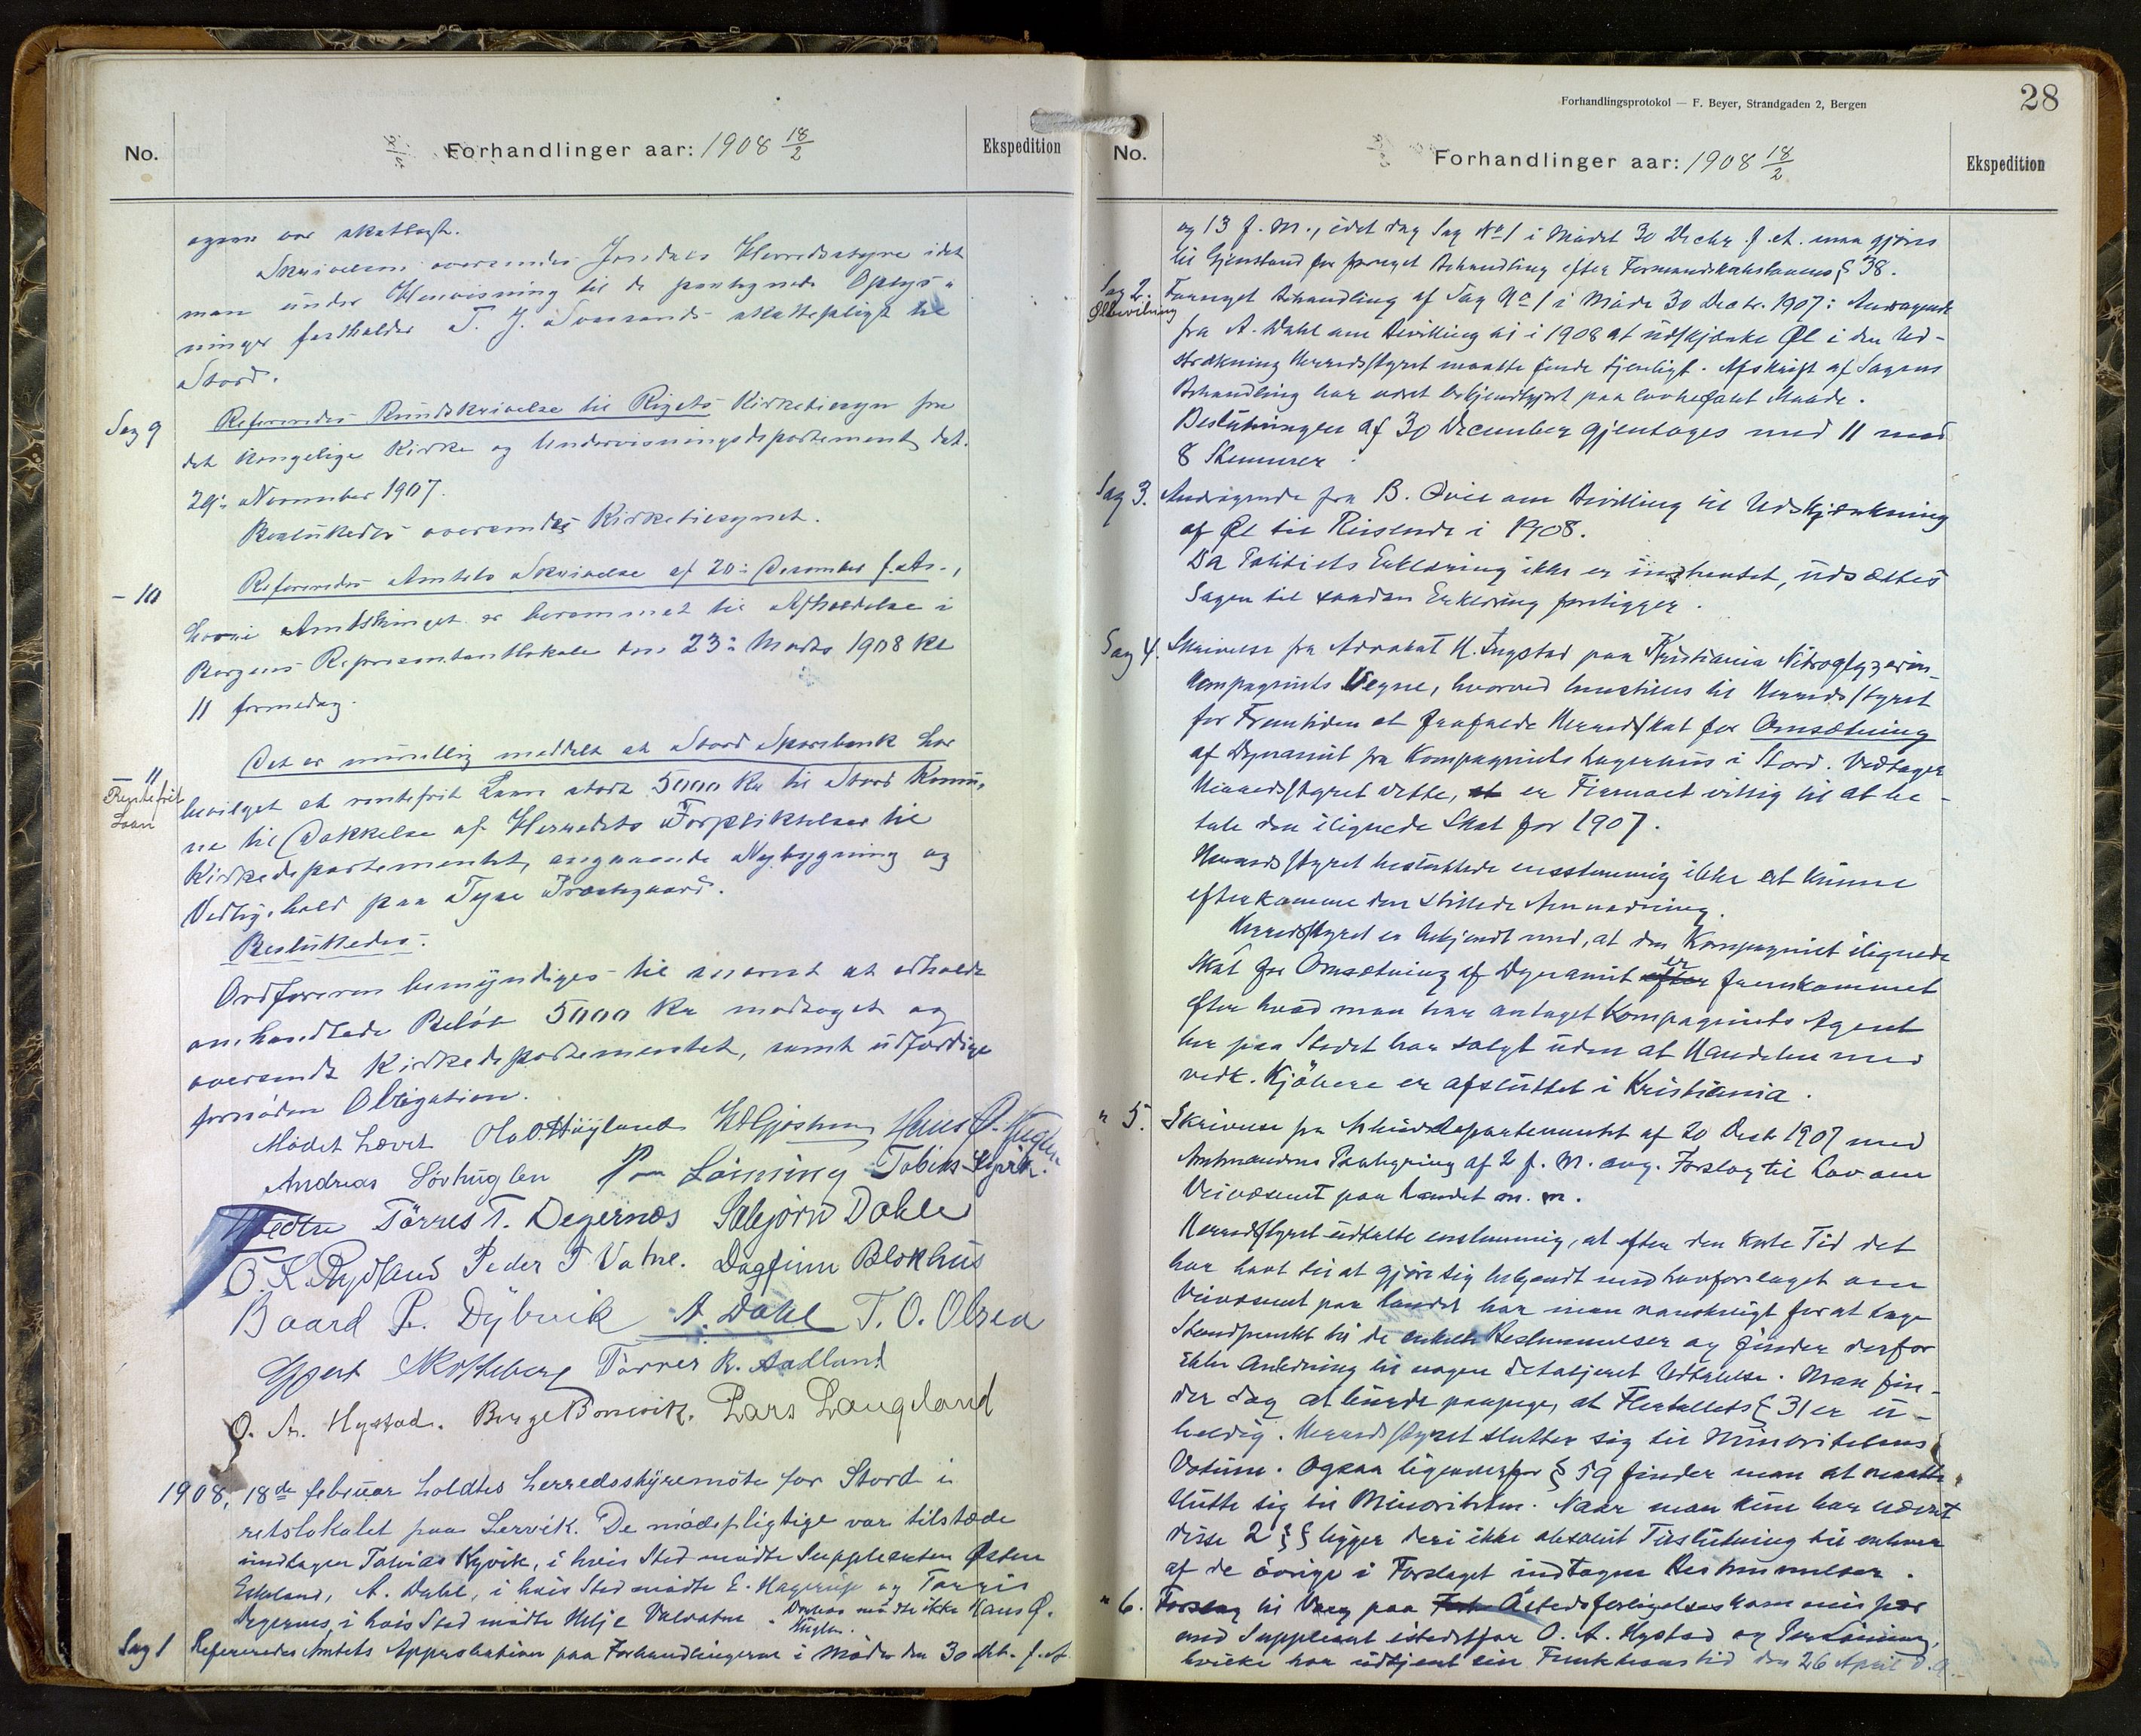 No.
Forhandlinger aar: 1908 18/2
Ekspedition
ogsaa var skatlagt.
Skrivelsen oversendes Jondals Herredsstyre idet
man under Henvisning til de paategnede Oplys-
ninger fastholder T. J. skattepligt til
Stord.
Sag 9
Referedes Rundskrivelse til Rigets Kirketilsyn fra
det kongelige Kirke og Undervisningsdepartement dat.
29: November 1907.
Besluttedes oversendes Kirketilsynet.
- 10
Referedes Amtets Skrivelse af 20: Desember f. Ar.,
hvori Amtsthinget er berammet til Afholdelse i
Bergens Repræsentantlokale den 23: Marts 1908 Kl
11 formedag.
- 11
Rentefrit
Laan
Det er mundtlig meddelt at Stord Sparebank har
bevilget et rentefrit Laan stort 5000 Kr til Stord Kommu-
ne til Dækkelse af Herredets Forpliktelser til
Kirkedepartementet, angaaende Nybygning og
Vedligehold paa Tyse Præstegaard.
Besluttedes:
Ordføreren bemyndiges til snarest at erholde
omhandlede Beløb 5000 Kr modtaget og
oversendt Kirkedepartementet, samt udfærdige
fornøden Obligation.
Mødet hævet Ola O. Høyland Hans Ø. Huglen
Andreas Sørhuglen Per Lønning Tobias Hyvik.
Tørres T. Degernæs Asbjørn Dahle
O. K. Rydland Peder T Vatne. Dagfinn Blokhus
Baard P. Dybvik A. Dahl T. O. Olsen
Tørres R. Aadland
O. A. Hystad. Børge Lars Langeland
1908, 18de februar holdtes herredsstyremøte for Stord i
retslokalet paa Lervik. De mødepligtige var tilstæde
undtagen Tobias Hyvik, i hvis Sted mødte Suppleanten Østen
Eskeland, A. Dahl, i hvis Sted mødte E. Hagerup og Tørris
Degernes, i hvis Sted mødte Helje Valvatne. Desuden mødte ikke Hans Ø.
Huglen.
Sag 1
Refereredes Amtets Approbation paa Forhandlingerne i Møde den 30 Dcb. f. A
Forhandlingsprotokol — F. Beyer, Strandgaden 2, Bergen
28
No.
Forhandlinger aar: 1908 18/2
Ekspedition
og 13 f. M., idet dog Sag No 1 i Mødet 30 Decbr. f. A. maa gjøres
til Gjenstand for fornyet Behandling efter Formandskabslovens § 38.
Sag 2.
Ølbevilning
Fornyet Behandling af Sag No 1 i Møde 30 Decbr. 1907: Andragende
fra A. Dahl om Bevilling til i 1908 at udskjænke Øl i den Ud-
strækning Herredsstyret maatte finde tjenligt. Afskrift af Sagens
Behandling har været bekjendtgjort paa lovbefalet Maade.
Beslutningen af 30 December gjentages med 11 mod
8 Stemmer.
Sag 3.
Andragende fra B. Qvie om Bevilling til Udskjænkning
af Øl til Reisende i 1908.
Da Politiets Erklæring ikke er indhentet, udsættes
Sagen til saadan Erklæring foreligger.
Sag 4.
Skrivelse fra Advokat H. Ingstad paa Kristiania Nitroglyzerin-
kompagniets Vegne, hvorved henstilles til Herredsstyret
for Fremtiden at frafalde Herredsskat for Omsætning
af Dynamit fra Kompagniets Lagerhus i Stord. Vedtager
Herredsstyret dette, er Firmaet villig til at be-
tale den ilignede Skat for 1907.
Herredsstyret besluttede enstemmig ikke at kunne
efterkomme den stillede Anmodning.
Herredsstyret er bekjendt med, at den Kompagniet ilignede
Skat for Omsætning af Dynamit er fremkommet
efter hvad man har antaget Kompagniets Agent
her paa Stedet har solgt uden at Handelen med
vedk. Kjøbere er afsluttet i Kristiania.
" 5.
Skrivelse fra Arbeidsdepartementet af 20 Decb 1907 med
Amtmandens Paategning af 2 f. M. ang. Forslag til Lov om
Veivæsenet paa Landet m. m.
Herredsstyret udtalte enstemmig, at efter den korte Tid det
har havt til at gjøre sig bekjendt med Lovforslaget om
Veivæsenet paa Landet har man vanskeligt for at tage
Standpunkt til de enkelte Bestemmelser og finder derfor
ikke Anledning til nogen detaljeret Udtalelse. Man fin-
der dog at burde paapege, at Flertallets § 31 er u-
heldig. Herredsstyret slutter sig til Minoritetens
Votum. Ogsaa ligeoverfor § 59 finder man at maatte
slutte sig til Minoriteten. Naar man kun har nævnt
disse 2 §§ ligger deri ikke absolut Tilslutning til enhver
af de øvrige i Forslaget indtagne Bestemmelser.
" 6.
Forslag til Valg paa Aastedsforligelseskommissær
med Suppleant istedetfor O. A. Hystad og Per Lønning,
hvilke har udtjent sin Funktionstid den 26 April d. A.